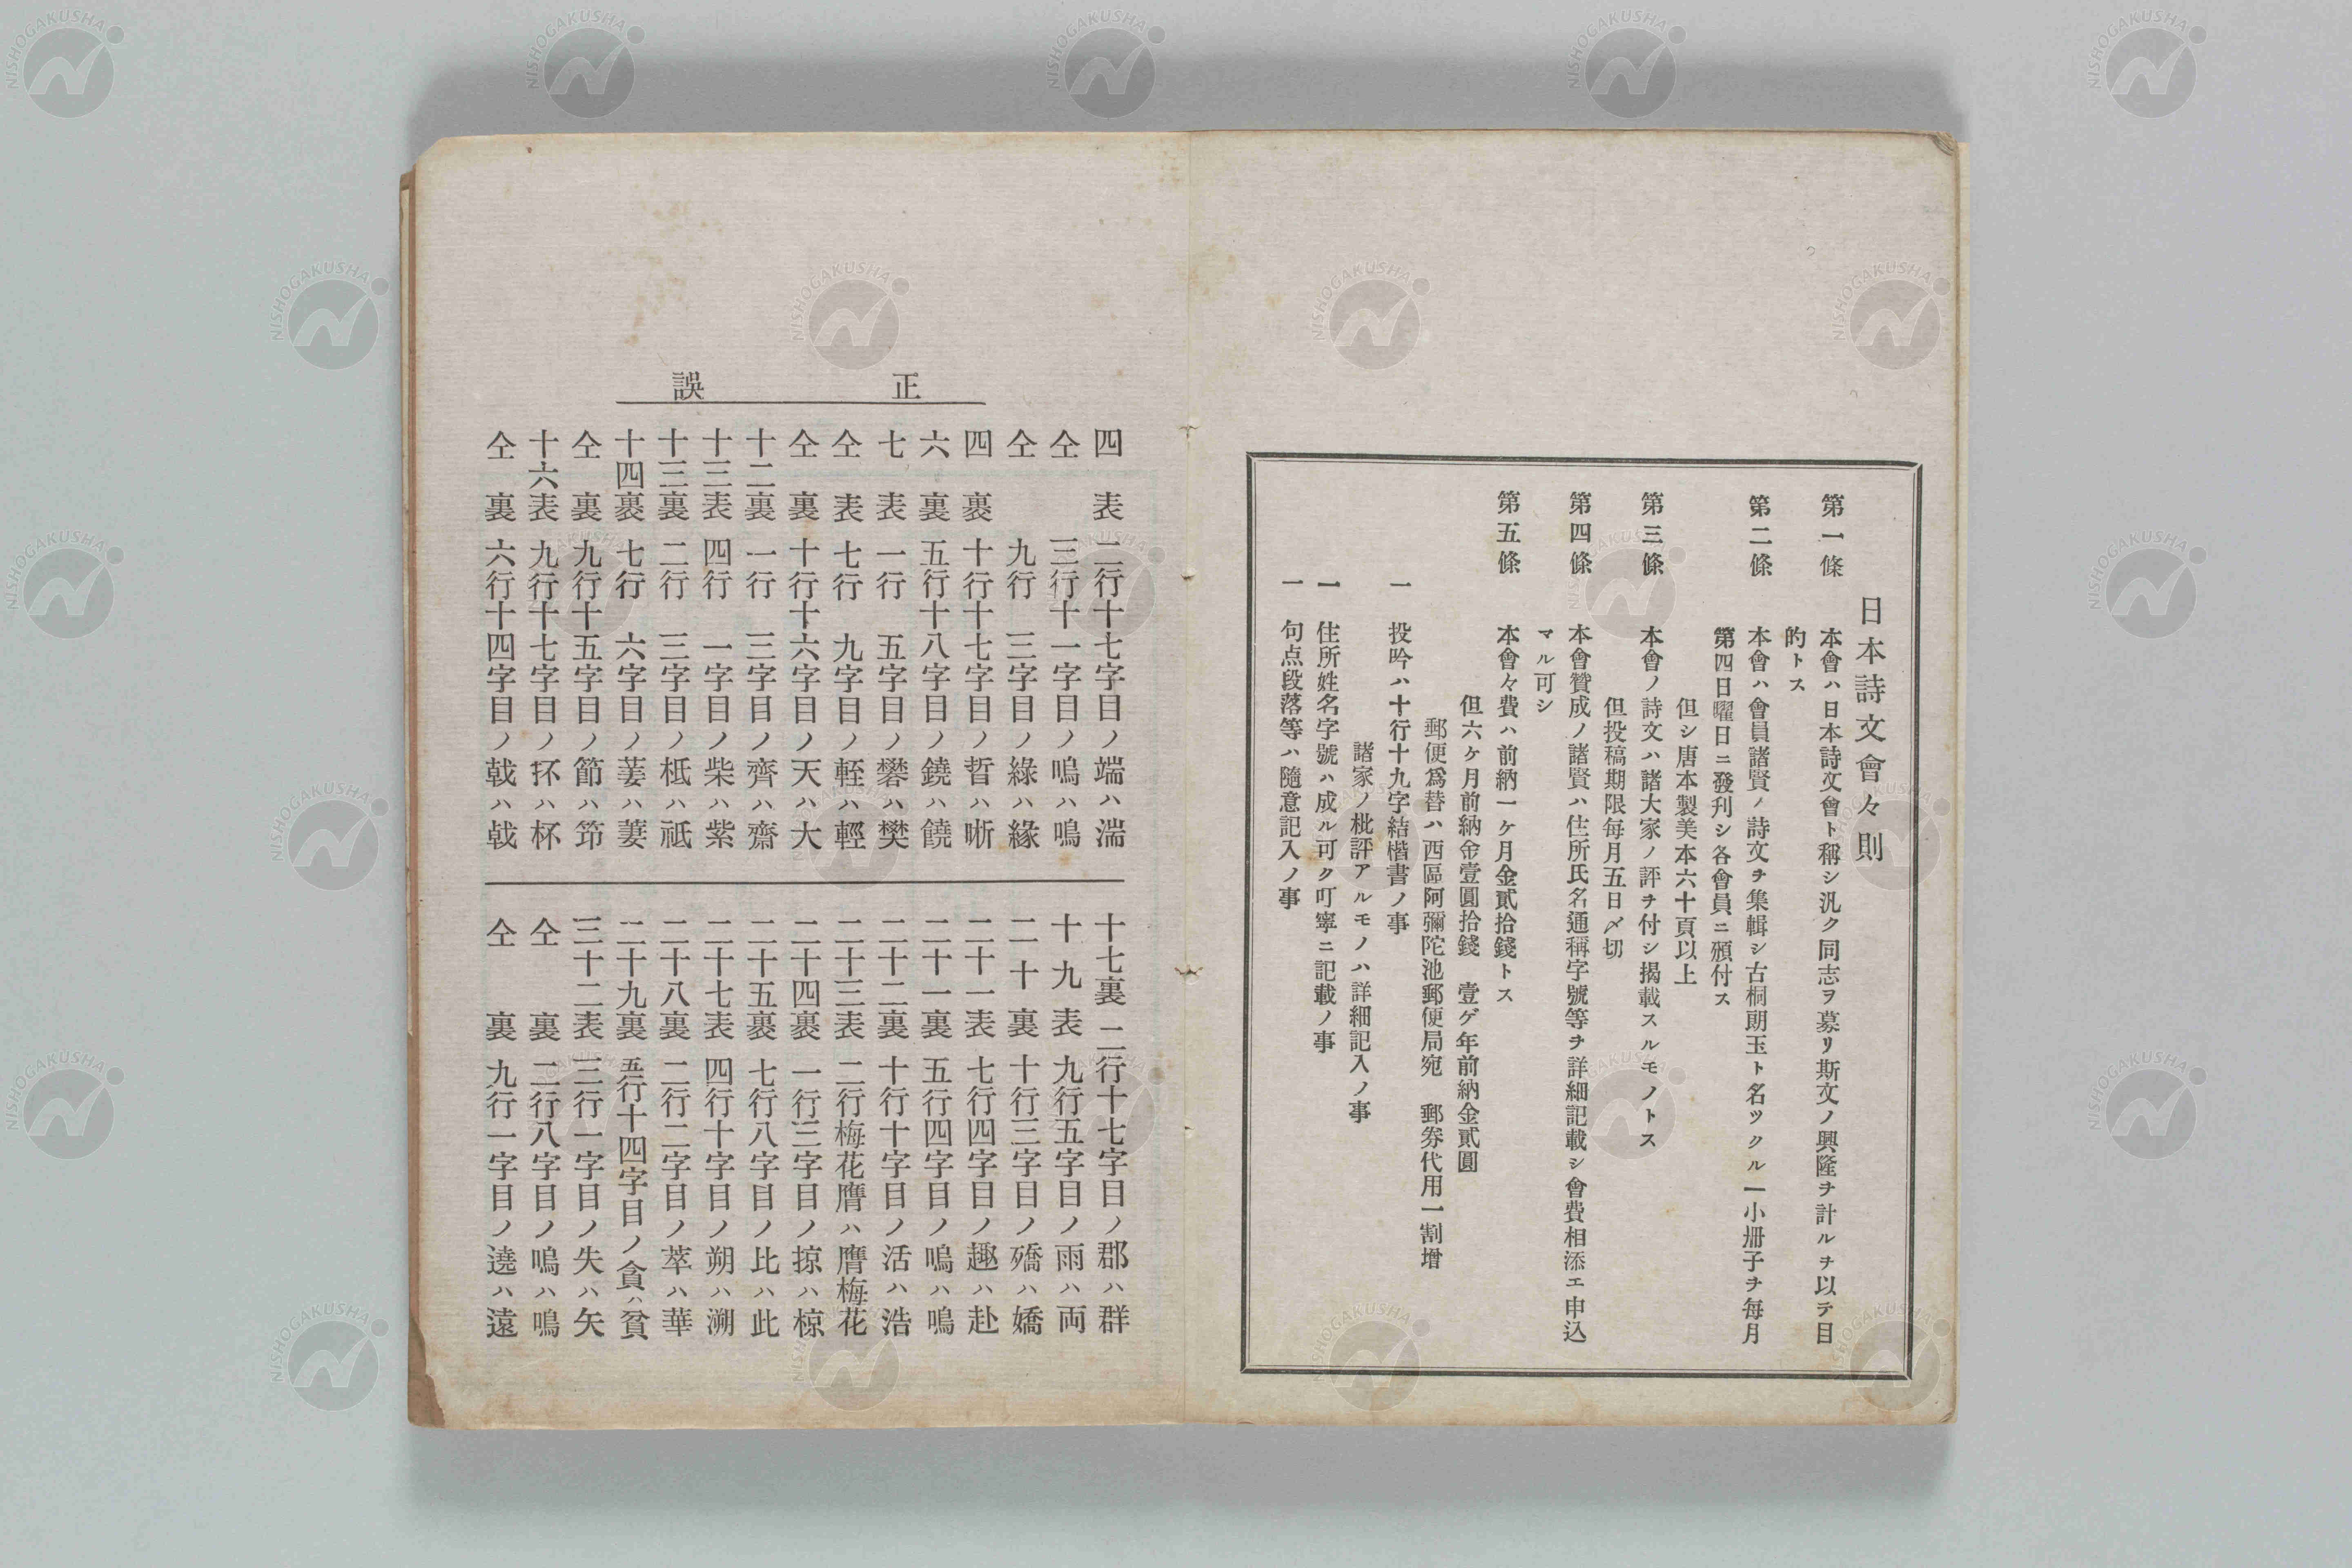 日本詩文會々則
第一條　本會ハ日本詩文會ト稱シ汎ク同志ヲ募リ斯文ノ興隆ヲ計ルヲ以テ目
的トス
第二條　本會ハ會員諸賢ノ詩文ヲ集輯シ古桐朗玉ト名ツクル一小册子ヲ每月
第四日曜日ニ發刊シ各會員ニ頒付ス
但シ唐本製美本六十頁以上
第三條　本會ノ詩文ハ諸大家ノ評ヲ付シ揭載スルモノトス
但投稿期限每月五日〆切
第四條　本會贊成ノ諸賢ハ住所氏名通稱字號等ヲ詳細記載シ會費相添エ申込
マル可シ
第五條　本會々費ハ前納一ケ月金貳拾錢トス
但六ケ月前納金壹圓拾錢　壹ゲ年前納金貳圓
郵便爲替ハ西區阿彌陀池郵便局宛　郵券代用一割增
一　投吟ハ十行十九字結楷書ノ事
諸家ノ批評アルモノハ詳細記入ノ事
一　住所姓名字號ハ成ル可ク叮寧ニ記載ノ事
一　句点段落等ハ隨意記入ノ事
正誤
四　表　二行十七字目ノ端ハ湍
仝　三行十一字目ノ嗚ハ鳴
仝　九行　三字目ノ綠ハ緣
四　裏　十行十七字目ノ晢ハ晰
六　裏　五行十八字目ノ鐃ハ饒
七　表　一行　五字目ノ礬ハ樊
仝　表　七行　九字目ノ輊ハ輕
仝　裏　十行十六字目ノ天ハ大
十二裏　一行　三字目ノ齊ハ齋
十三表　四行　一字目ノ柴ハ紫
十三裏　二行　三字目ノ柢ハ祗
十四裏　七行　六字目ノ萋ハ蔞
仝　裏　九行十五字目ノ節ハ筇
十六表　九行十七字目ノ抔ハ杯
仝　裏　六行十四字目ノ戟ハ戟
十七裏　二行十七字目ノ郡ハ群
十九　表　九行五字目ノ雨ハ両
二十　裏　十行三字目ノ殤ハ嬌
二十一表　七行四字目ノ趣ハ赴
二十一裏　五行四字目ノ嗚ハ鳴
二十二裏　十行十字目ノ活ハ浩
二十三表　二行梅花鷹ハ鷹梅花
二十四裏　一行三字目ノ掠ハ椋
二十五裏　七行八字目ノ比ハ此
二十七表　四行十字目ノ朔ハ溯
二十八裏　二行二字目ノ萃ハ華
二十九裏　五行十四字目ノ貪ハ貧
三十二表　三行一字目ノ失ハ矢
仝　裏　二行八字目ノ嗚ハ鳴
仝　裏　九行一字目ノ遶ハ遠